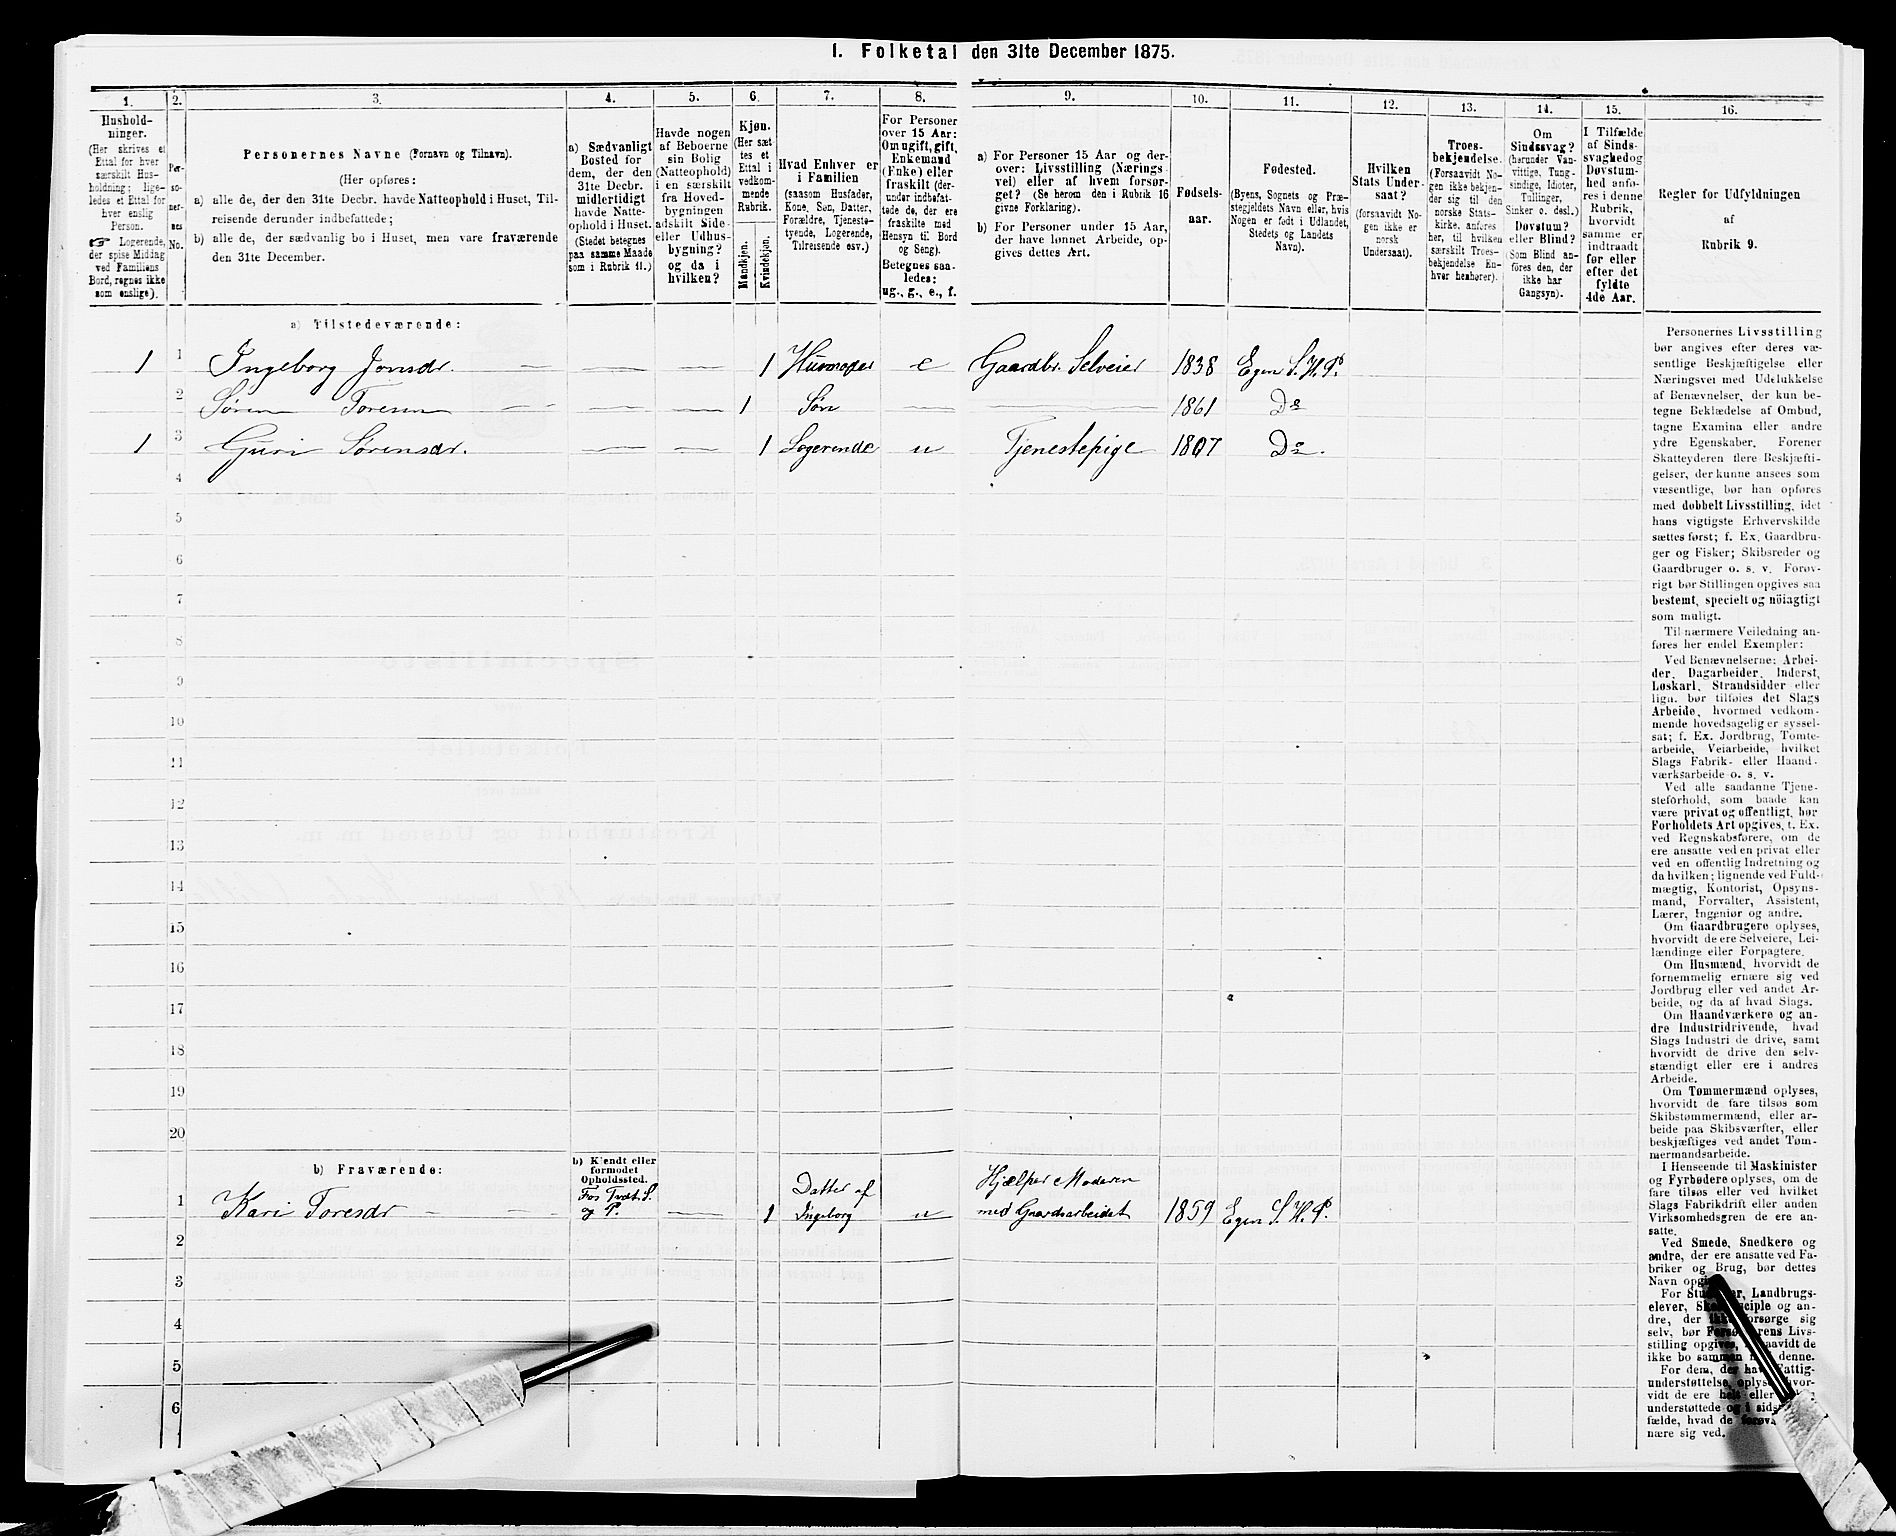 I. Folketal den 31te December 1875.
1. 2. 3. 4. 5. 6. 7. 8. 9. 10. 11. 12. 13. 14. 15. 16.
Hushold-
ninger.
(Her skrives et
Ettal for hver
særskilt Hus-
holdning; lige-
ledes et Ettal for
hver enslig
Person.
☞ Logerende,
der spise Middag
ved Familiens
Bord, regnes ikke
som enslige).
Per-
so-
ner-
nes
No.
Personernes Navne (Fornavn og Tilnavn).
(Her opføres:
a) alle de, der den 31te Decbr. havde Natteophold i Huset, Til-
reisende derunder indbefattede;
b) alle de, der sædvanlig bo i Huset, men vare fraværende
den 31te December.
a) Sædvanligt
Bosted for
dem, der den
31te Decbr.
midlertidigt
havde Natte-
ophold i Huset.
(Stedet betegnes
paa samme Maade
som i Rubrik 11.)
Havde nogen
af Beboerne
sin Bolig
(Natteophold)
i en særskilt
fra Hoved-
bygningen
adskilt Side-
eller Udhus-
bygning?
og da i
hvilken?
Kjøn.
(Her sæt-
tes et
Ettal i
vedkom-
mende
Rubrik.
Mandkjøn.
Kvindekjøn.
Hvad Enhver er
i Familien
(saasom Husfader,
Kone, Søn, Datter,
Forældre, Tjeneste-
tyende, Logerende,
Tilreisende osv.)
For Personer
over 15 Aar:
Om ugift, gift,
Enkemand
(Enke) eller
fraskilt (der-
under indbefat-
tede de, der ere
fraskilte med
Hensyn til Bord
og Seng).
Betegnes saa-
ledes:
ug., g., e., f.
a) For Personer 15 Aar og der-
over: Livsstilling (Nærings-
vei) eller af hvem forsør-
get? (Se herom den i Rubrik 16
givne Forklaring).
b) For Personer under 15 Aar,
der have lønnet Arbeide, op-
gives dettes Art.
Fødsels-
aar.
Fødested.
(Byens, Sognets og Præ-
stegjeldets Navn eller, hvis
Nogen er født i Udlandet,
Stedets og Landets
Navn).
Hvilken
Stats Under-
saat?
(forsaavidt No-
gen ikke er
norsk
Undersaat).
Troes-
bekjendelse.
(Forsaavidt No-
gen ikke bekjen-
der sig til den
norske Stats-
kirke, anføres
her, til hvilken
særskilt Troes-
bekjendelse En-
hver henhører).
Om
Sindssvag?
(herunder Van-
vittige, Tung-
sindige, Idioter,
Tullinger,
Sinker o. desl.)
Døvstum?
eller Blind?
(Som Blind an-
føres den, der
ikke har
Gangsyn).
I Tilfælde
af Sinds-
svaghed og
Døvstum-
hed anfø-
res i denne
Rubrik,
hvorvidt
samme er
indtraadt
før eller
efter det
fyldte
4de Aar.
Regler for Udfyldningen
af
Rubrik 9.
a) Tilstedeværende:
1 1 Ingeborg Jonsdr. — — — 1 Husmoder e Gaardbr. Selveier 1838 Egen S. H. P.
2 Søren Toresen — — — 1 Søn — — 1861 Do
1 3 Guri Sørensdr. — — 1 Logerende u Tjenestepige 1807 Do.
4
5
6
7
8
9
10
11
12
13
14
15
16
17
18
19
20
b) Fraværende:
b) Kjendt eller
formodet
Opholdssted.
1 Kari Toresdr — — Fos Tvdt. S.
og P. — 1 Datter af
Ingeborg u Hjælper Moderen
med Gaardsarbeidet 1859 Egen S. H. P.
2
3
4
5
6
Personernes Livsstilling
bør angives efter deres væ-
sentlige Beskjæftigelse eller
Næringsvei med Udelukkelse
af Benævnelser, der kun be-
tegne Beklædelse af Ombud,
tagne Examina eller andre
ydre Egenskaber. Forener
Skatteyderen flere Beskjæfti-
gelser, der kunne ansees som
væsentlige, bør han opføres
med dobbelt Livsstilling, idet
hans vigtigste Erhvervskilde
sættes først; f. Ex. Gaardbru-
ger og Fisker; Skibsreder og
Gaardbruger o. s. v. Forøv-
rigt bør Stillingen opgives saa
bestemt, specielt og nöiagtigt
som muligt.
Til nærmere Veiledning an-
føres her endel Exempler:
Ved Benævnelserne: Arbei-
der, Dagarbeider, Inderst,
Løskarl, Strandsidder eller
lign. bør tilføies det Slags
Arbeide, hvormed vedkom-
mende hovedsagelig er syssel-
sat; f. Ex. Jordbrug, Tomte-
arbeide, Veiarbeide, hvilket
Slags Fabrik- eller Haand-
værksarbeide o. s. v.
Ved alle saadanne Tjene-
steforhold, som baade kan
være privat og offentligt, bør
Forholdets Art opgives, t. Ex.
ved Regnskabsførere, om de
ere ansatte ved en privat eller
ved en offentlig Indretning og
da hvilken; lignende ved Fuld-
mægtig, Kontorist, Opsyns-
mand, Forvalter, Assistent,
Lærer, Ingeniør og andre.
Om Gaardbrugere oplyses,
hvorvidt de ere Selveiere, Lei-
lændinge eller Forpagtere.
Om Husmænd, hvorvidt de
fornemmelig ernære sig ved
Jordbrug eller ved andet Ar-
beide, og da af hvad Slags.
Om Haandværkere og an-
dre Industridrivende, hvad
Slags Industri de drive, samt
hvorvidt de drive den selv-
stændigt eller ere i andres
Arbeide.
Om Tømmermænd oplyses,
hvorvidt de fare tilsøs som
Skibstømmermænd, eller ar-
beide paa Skibsværfter, eller
beskjæftiges ved andet Tøm-
mermandsarbeide.
I Henseende til Maskinister
og Fyrbødere oplyses, om de
fare tilsøs eller ved hvilket
Slags Fabrikdrift eller anden
Virksomhedsgren de ere an-
satte.
Ved Smede, Snedkere og
andre, der ere ansatte ved Fa-
briker og Brug, bør dettes
Navn
For Landbrugs-
elever, og an-
dre, der sig
selv, bør Livs-
stilling de
ikke bo denne.
For dem, der Fattig-
understøttelse,
vidt de ere helt eller
understøttede og i
fælde, hvad de
nære sig ved.